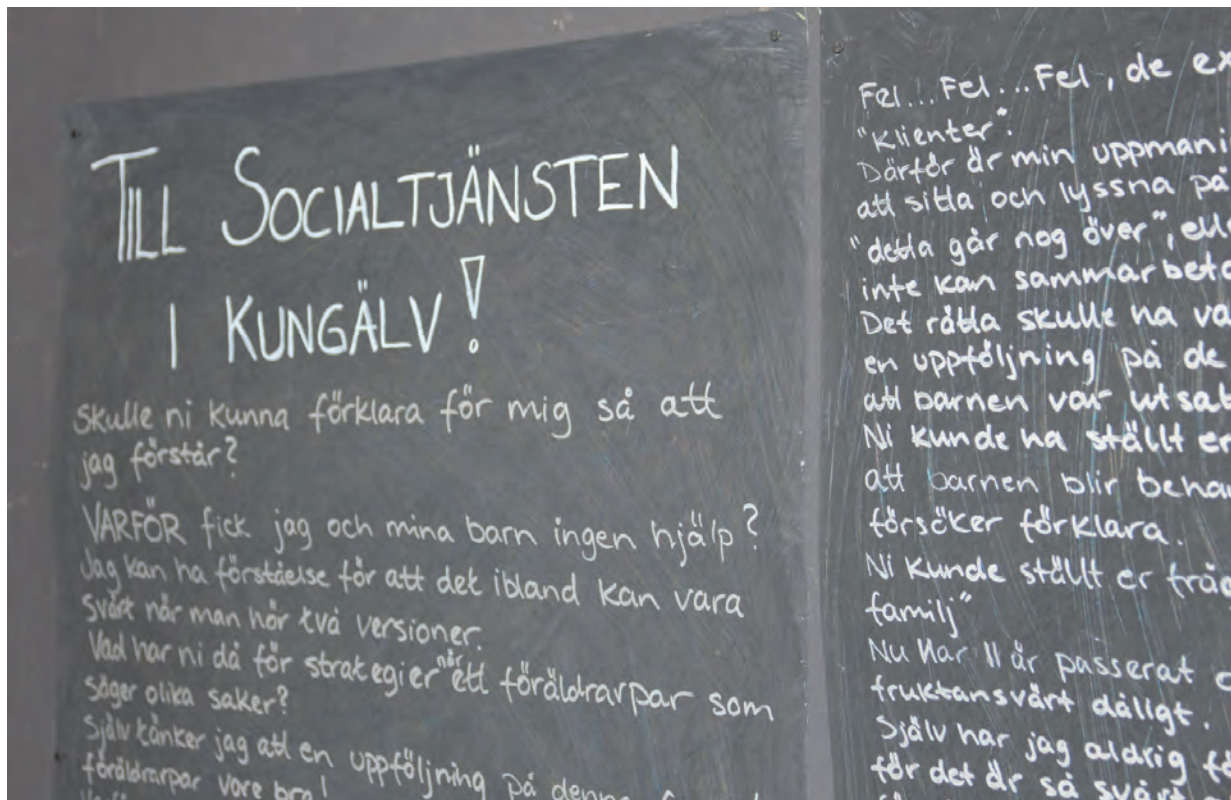 TILL SOCIALTJÄNSTEN
I KUNGÄLV!
Skulle ni kunna förklara för mig så att
jag förstår?
VARFÖR fick jag och mina barn ingen hjälp?
Jag kan ha förståelse för att det ibland kan vara
svårt når man hör två versioner.
Vad har ni då för strategier när ett föräldrarpar som
säger olika saker?
Själv tänker jag att en uppföljning på denna
föräldrarpar vore bra!
Fel...Fel...Fel, de
"klienter".
Därför är min
att sitta och lyssna på
"detta går nog över",
inte kan
Det rätta skulle ha
en uppföljning på de
att barnen var
Ni kunde ha ställt er
att barnen blir
försöker förklara.
Ni kunde ställt er
familj"
Nu har 11 år passerat
fruktansvärt dåligt.
Själv har jag aldrig
för det är så svårt